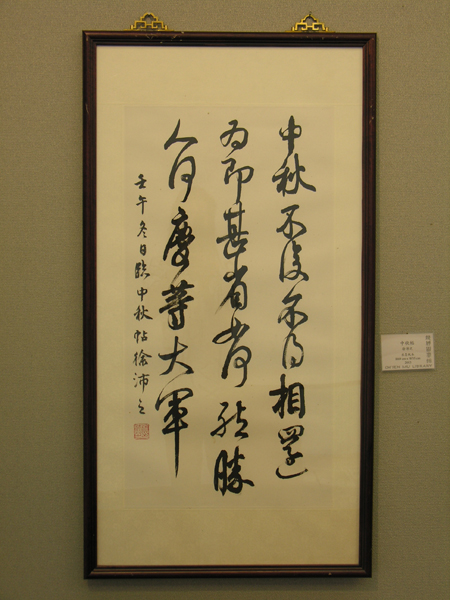 中秋不復不得相還
為即甚省如何然勝
人何慶等大軍
壬午冬日臨中秋帖徐沛之
中秋帖